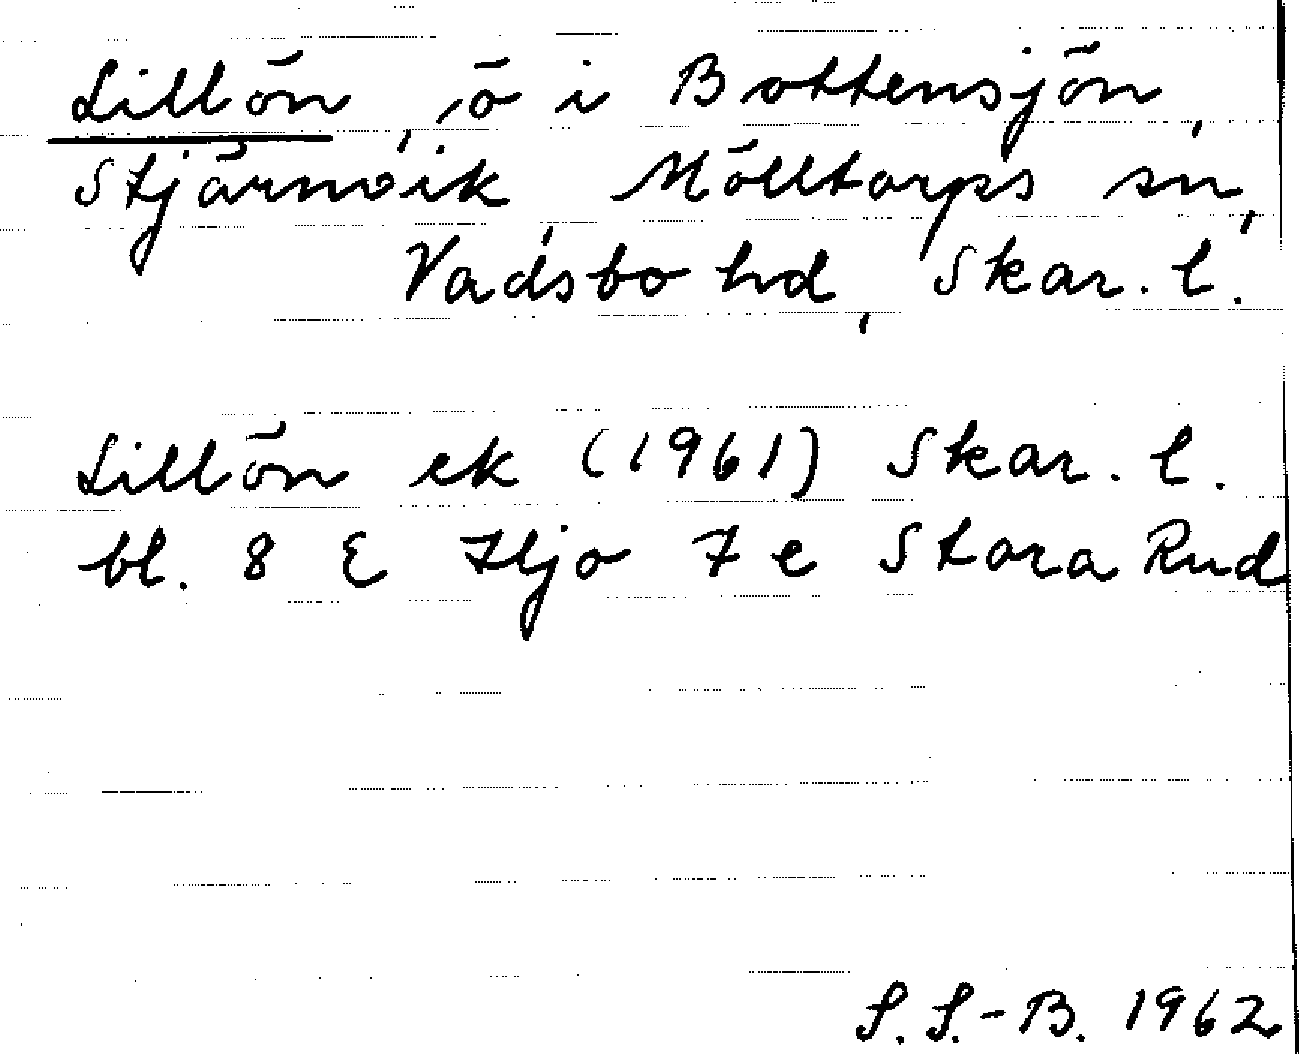 Lillön, ö i Bottensjön,
Stjärnvik, Mölltorps sn,
Vadsbo hd, Skar. l.
Lillön ek (1961) Skar. l.
bl. 8 E Hjo 7 e Stora Rud
S. S.-B. 1962